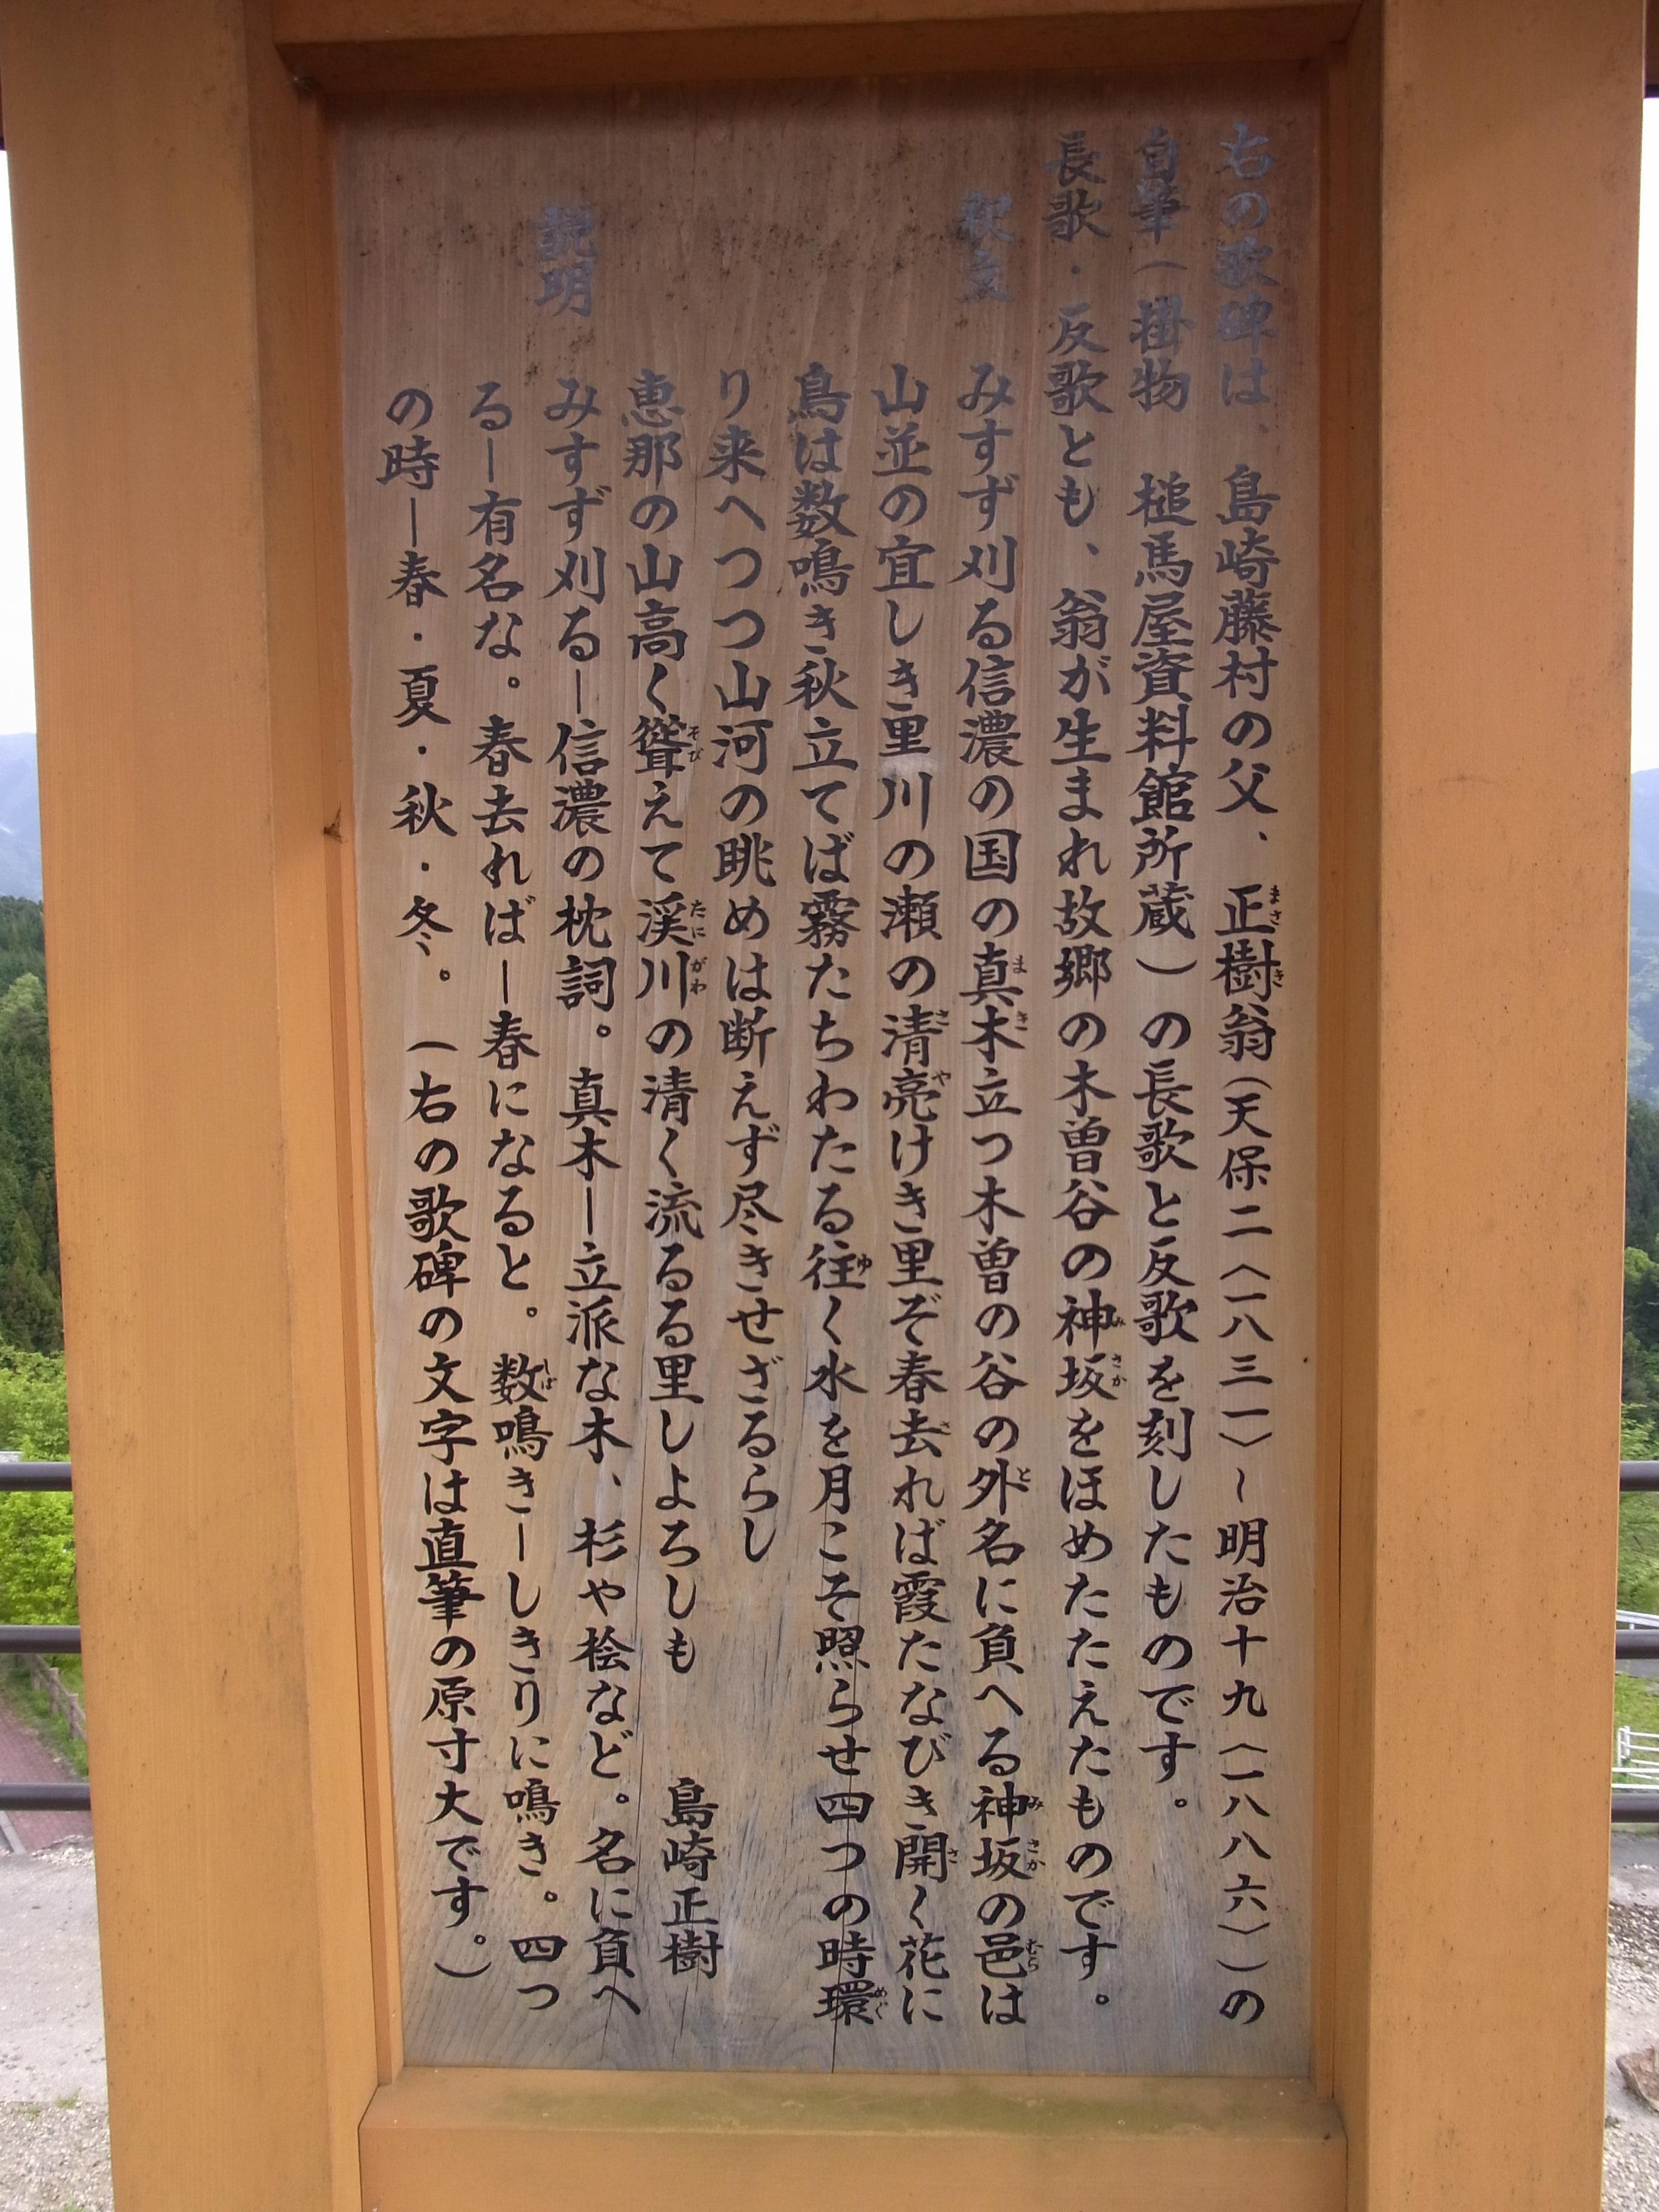 右の歌碑は、島崎藤村の父、正樹翁(天保二〈一八三一〉~明治十九〈一八八六〉)の
自筆(掛物 槌馬屋資料館所蔵)の長歌と反歌を刻したものです。
長歌・反歌とも、翁が生まれ故郷の木曽谷の神坂をほめたたえたものです。
釈文 みすず刈る信濃の国の真木立つ木曽の谷の外名に負へる神坂の邑は
山並の宜しき里川の瀬の清亮けき里ぞ春去れば霞たなびき開く花に
鳥は数鳴き秋立てば霧たちわたる往く水を月こそ照らせ四つの時環
り来へつつ山河の眺めは断えず尽きせざるらし
恵那の山高く聳えて渓川の清く流るる里しよろしも 島崎正樹
説明 みすず刈る―信濃の枕詞。真木―立派な木、杉や桧など。名に負へ
る―有名な。春去れば―春になると。数鳴き―しきりに鳴き。四つ
の時―春・夏・秋・冬。(右の歌碑の文字は直筆の原寸大です。)